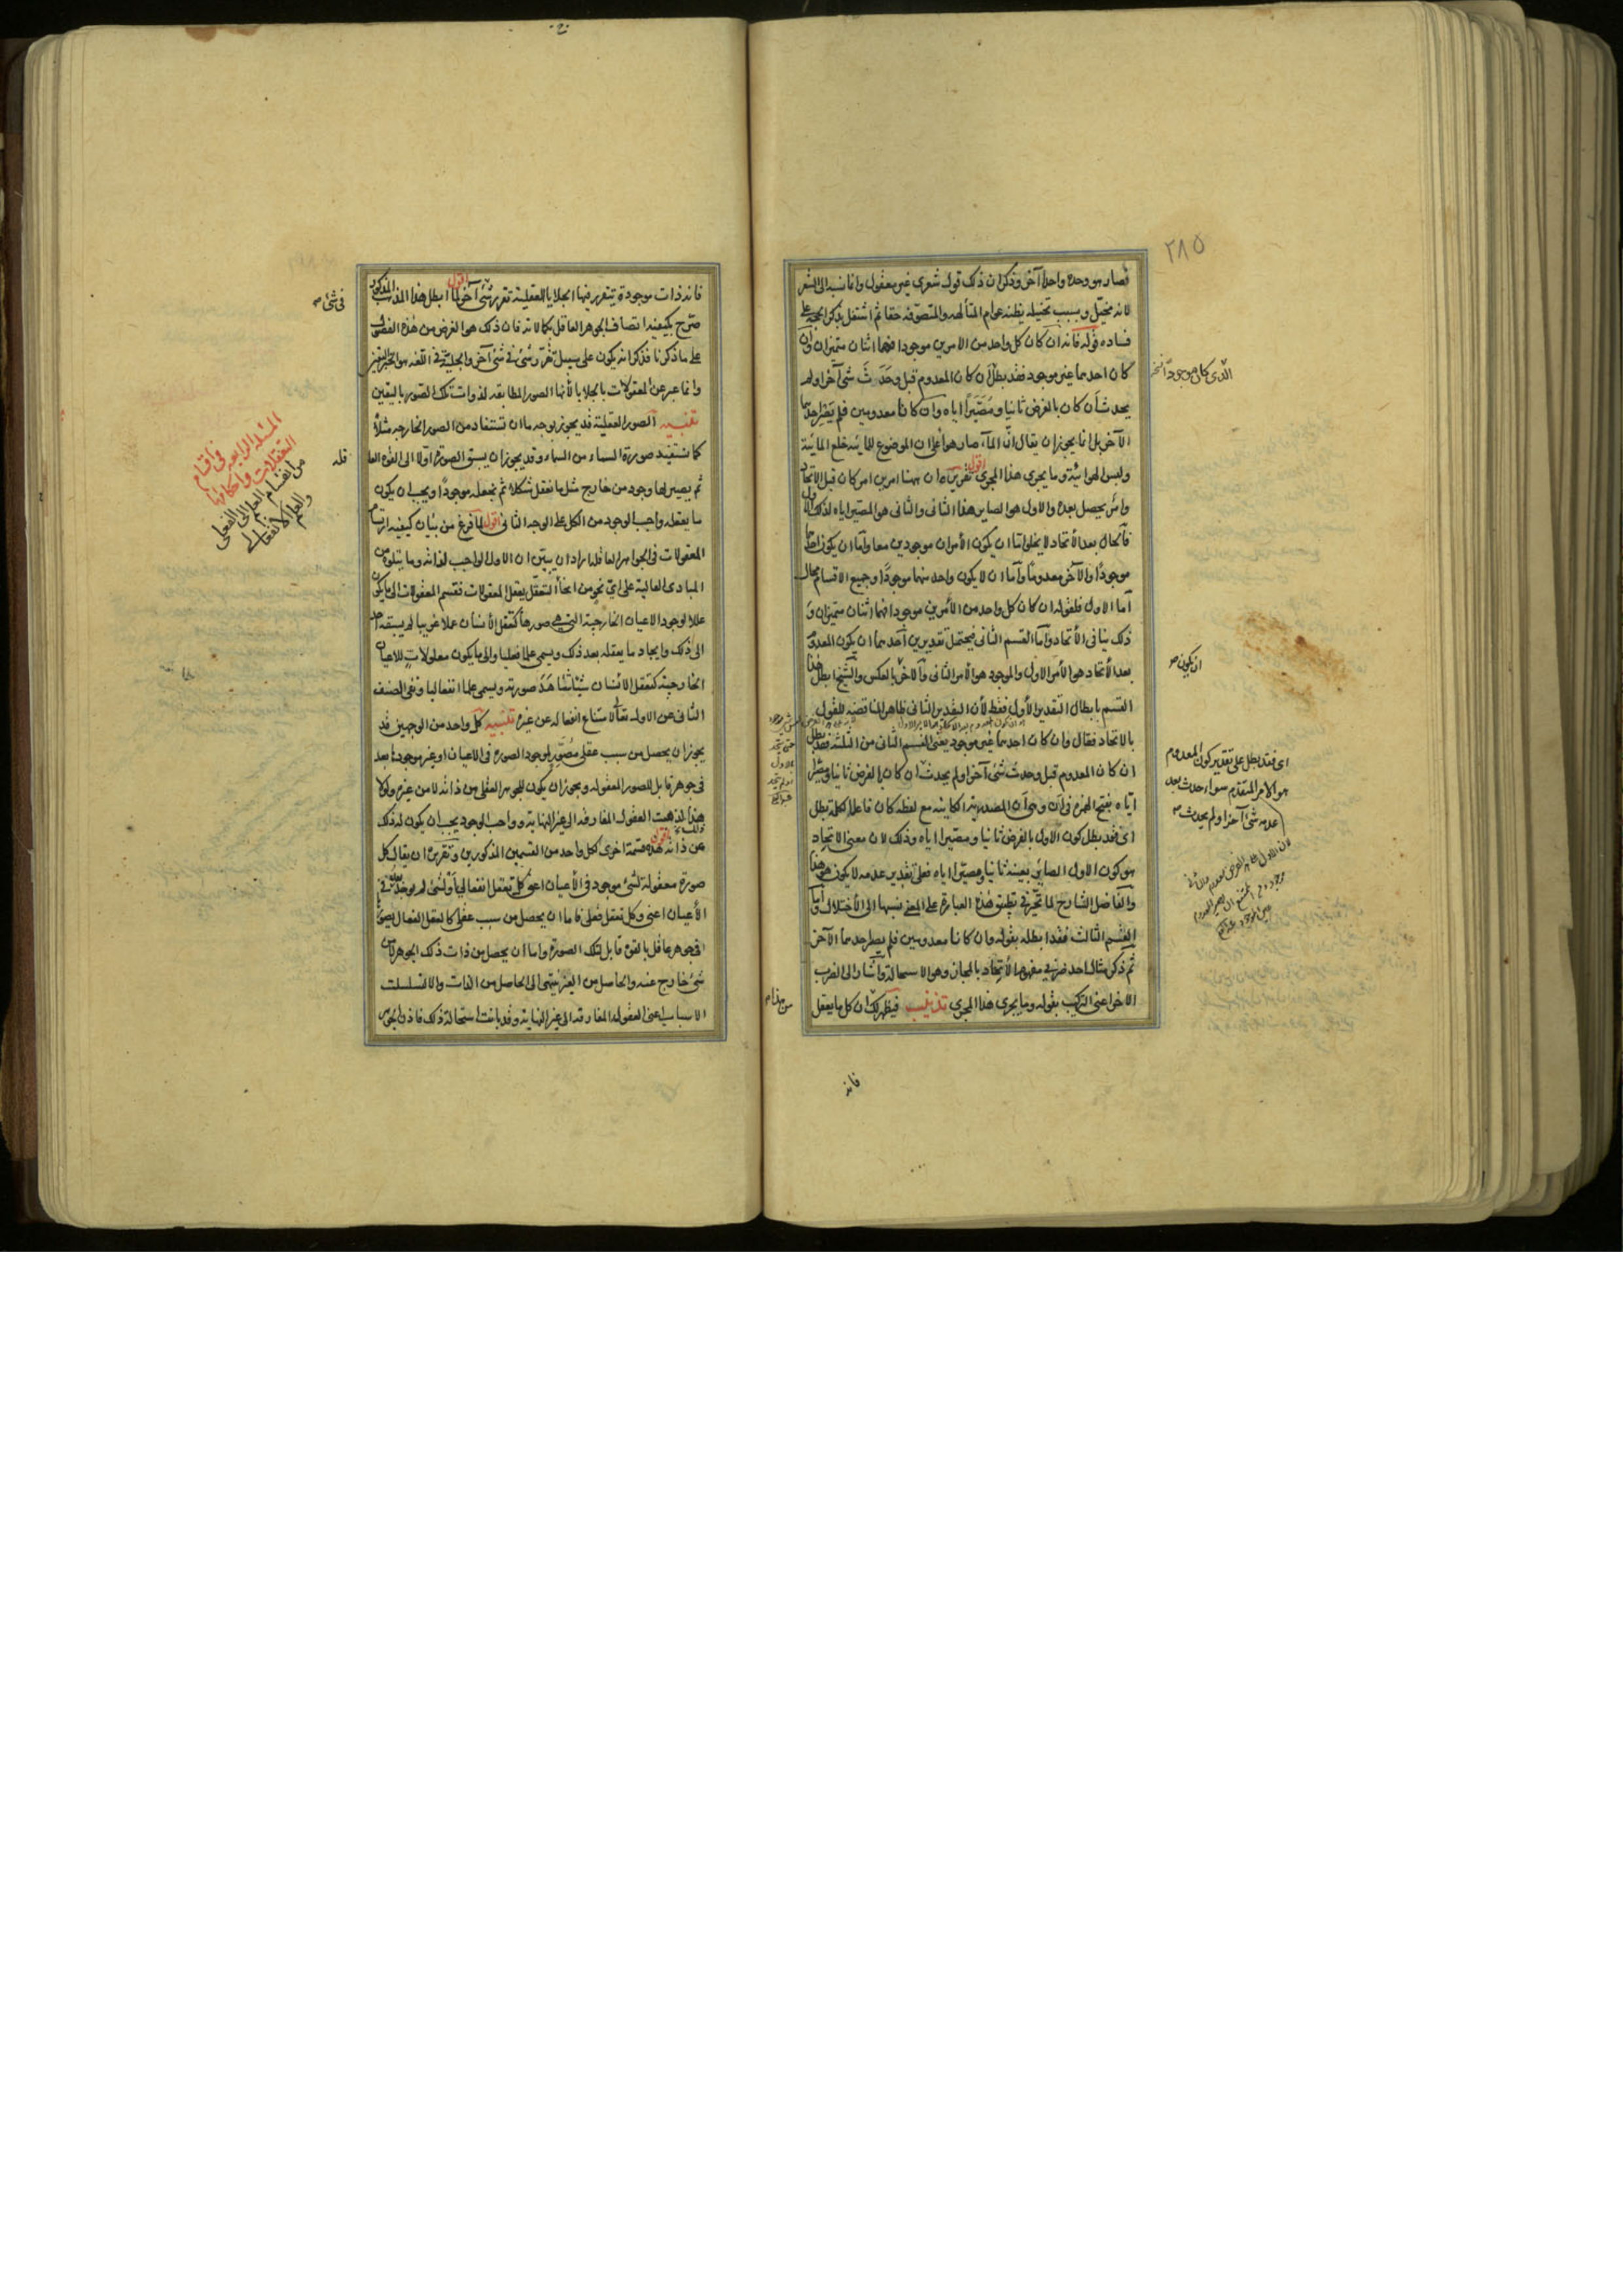 ٢٨٥
فصار هو وحده واحدا آخر وذكر ان ذلك قول شعرى غير معقول وانما نسبه الى الشعر
لانه مخيل وبسبب تخييله يظنه عوام المتألهه والمتصوفه حقا ثم اشتغل بذكر الحجة على
فساده قوله فانه ان كان كل واحد من الامرين موجودا فهما اثنان متميزان وان
كان احدهما غير موجود فقد بطل ان كان المعدوم قبل وحدث شئ آخر او لم
يحدث ان كان بالفرض ثانيا ومصيرا اياه وان كانا معدومين فلم يصر احدهما
الآخر بل انما يجوز ان يقال ان المآء صار هوآء على ان الموضوع للمائية خلع المائية
ولبس الهوائية وما يجرى هذا المجرى اقول تقريره ان ههنا امرين امر كان قبل الاتحاد
وامر يحصل بعده والاول هو الصاير هذا الثانى والثانى هو المصير اياه لذلك الاول
فالحال بعد الاتحاد لا يخلو اما ان يكون الأمران موجودين معا واما ان يكون احدهما
موجودا والآخر معدوما واما ان لا يكون واحد منهما موجودا وجميع الاقسام محال
اما الاول فلقوله ان كان كل واحد من الأمرين موجودا فهما اثنان متميزان و
ذلك ينافى الأتحاد واما القسم الثانى فيحتمل تقديرين احدهما ان يكون المعدوم
بعد الأتحاد هو الأمر الاول والموجود هو الأمر الثانى والآخر بالعكس والشيخ ابطل هذا
القسم بابطال التقدير الأول فقط لأن التقدير الثانى ظاهر المناقضة للقول
بالاتحاد فقال وان كان احدهما غير موجود يعنى القسم الثانى من الثلثة فقد بطل
ان كان المعدوم قبل وحدث شئ آخر او لم يحدث ان كان بالفرض ثانيا ومصيرا
اياه بفتح الهمزة فى أن وهى أن المصدرية الكاينة مع لفظه كان فاعلا لكلمة بطل
اى فقد بطل كون الأول بالفرض ثانيا ومصيرا اياه وذلك لان معنى الاتحاد
هو كون الاول الصاير بعينه ثانيا ومصيرا اياه فعلى تقدير عدمه لا يكون هو هذا
والفاضل الشارح لما تحير فى تطبيق هذه العبارة على المعنى نسبها الى الأختلال واما
القسم الثالث فقد ابطله بقوله وان كانا معدومين فلم يصر احدهما الآخر
ثم ذكر مثال احد ضربى مفهوم الأتحاد بالمجاز وهو الاستحالة واشار الى الضرب
الاخر اعنى التركيب بقوله وما يجرى هذا المجرى تذنيب فيظهر لك ان كل ما يعقل
فانه
الذى كان موجودا
ان يكون صح
اى فقد بطل على تقدير كون المعدوم
هو الامر المتقدم سواء حدث بعد
عدمه شئ آخر او لم يحدث
فانه ذات موجودة يتقرر فيها الجلايا العقلية تقرر شئ آخر اقول لما ابطل هذا المذهب المذكور
صرح بكيفية اتصاف الجوهر العاقل بكمالاته فان ذلك هو الغرض من هذه الفصول
على ما ذكرنا فذكر انه يكون على سبيل تقرر شئ فى شئ آخر والجلية فى اللغه هو الخبر اليقين
وانما عبر عن المعقولات بالجلايا لأنها الصور المطابقه لذوات تلك الصور باليقين
تنبيه الصور العقلية قد يجوز بوجه ما ان تستفاد من الصور الخارجه مثلا
كما نستفيد صورة السماء من السماء وقد يجوز ان يسبق الصورة اولا الى القوه العاقله
ثم يصير لها وجود من خارج مثل ما نعقل شكلا ثم نجعله موجودا ويجب ان يكون
ما يعقله واجب الوجود من الكل على الوجه الثانى اقول لما فرغ من بيان كيفيه ارتسام
المعقولات فى الجواهر العاقله اراد ان يبين ان الاول الواجب لذاته وما يتلوه من
المبادى العالية على اى نحو من انحاء التعقل يعقل المعقولات فقسم المعقولات الى ما يكون
عللا لوجود الاعيان الخارجية التى هى صورها كتعقل الأنسان عملا غريبا لم يسبقه احد
الى ذلك وايجاد ما يعقله بعد ذلك ويسمى علما فعليا والى ما يكون معلولات للاعيان
الخارجية كتعقل الأنسان شيئا شاهد صورته ويسمى علما انفعاليا ونفى الصنف
الثانى عن الاول تعالى لامتناع انفعاله عن غيره تنبيه كل واحد من الوجهين قد
يجوز ان يحصل من سبب عقلى مصور لموجود الصورة فى الاعيان او غير موجودها بعد
فى جوهر قابل للصور المعقوله ويجوز ان يكون للجوهر العقلى من ذاته لا من غيره ولولا
هذا لذهبت العقول المفارقه الى غير النهاية وواجب الوجود يجب ان يكون له ذلك
عن ذاته اقول هذه قسمة اخرى لكل واحد من القسمين المذكورين وتقريره ان يقال كل
صورة معقولة لشئ موجود فى الأعيان اعنى كل تعقل انفعالى او لشئ لم يوجد بعد فى
الأعيان اعنى وكل تعقل فعلى فاما ان يحصل من سبب عقلى كالعقل الفعال يصور
فى جوهر عاقل بالقوه قابل لتلك الصورة واما ان يحصل من ذات ذلك الجوهر لا من
شئ خارج عنه والحاصل من الغير ينتهى الى الحاصل من الذات والا لتسلسلت
الاسباب اعنى العقول المفارقه الى غير النهاية وقد بانت استحالة ذلك فاذن الجوهر
فى شئ صح
المسئله الرابعه فى اقسام
التعقلات واحكامها
من انقسام العلم الى الفعلى
والعلم الانفعالى